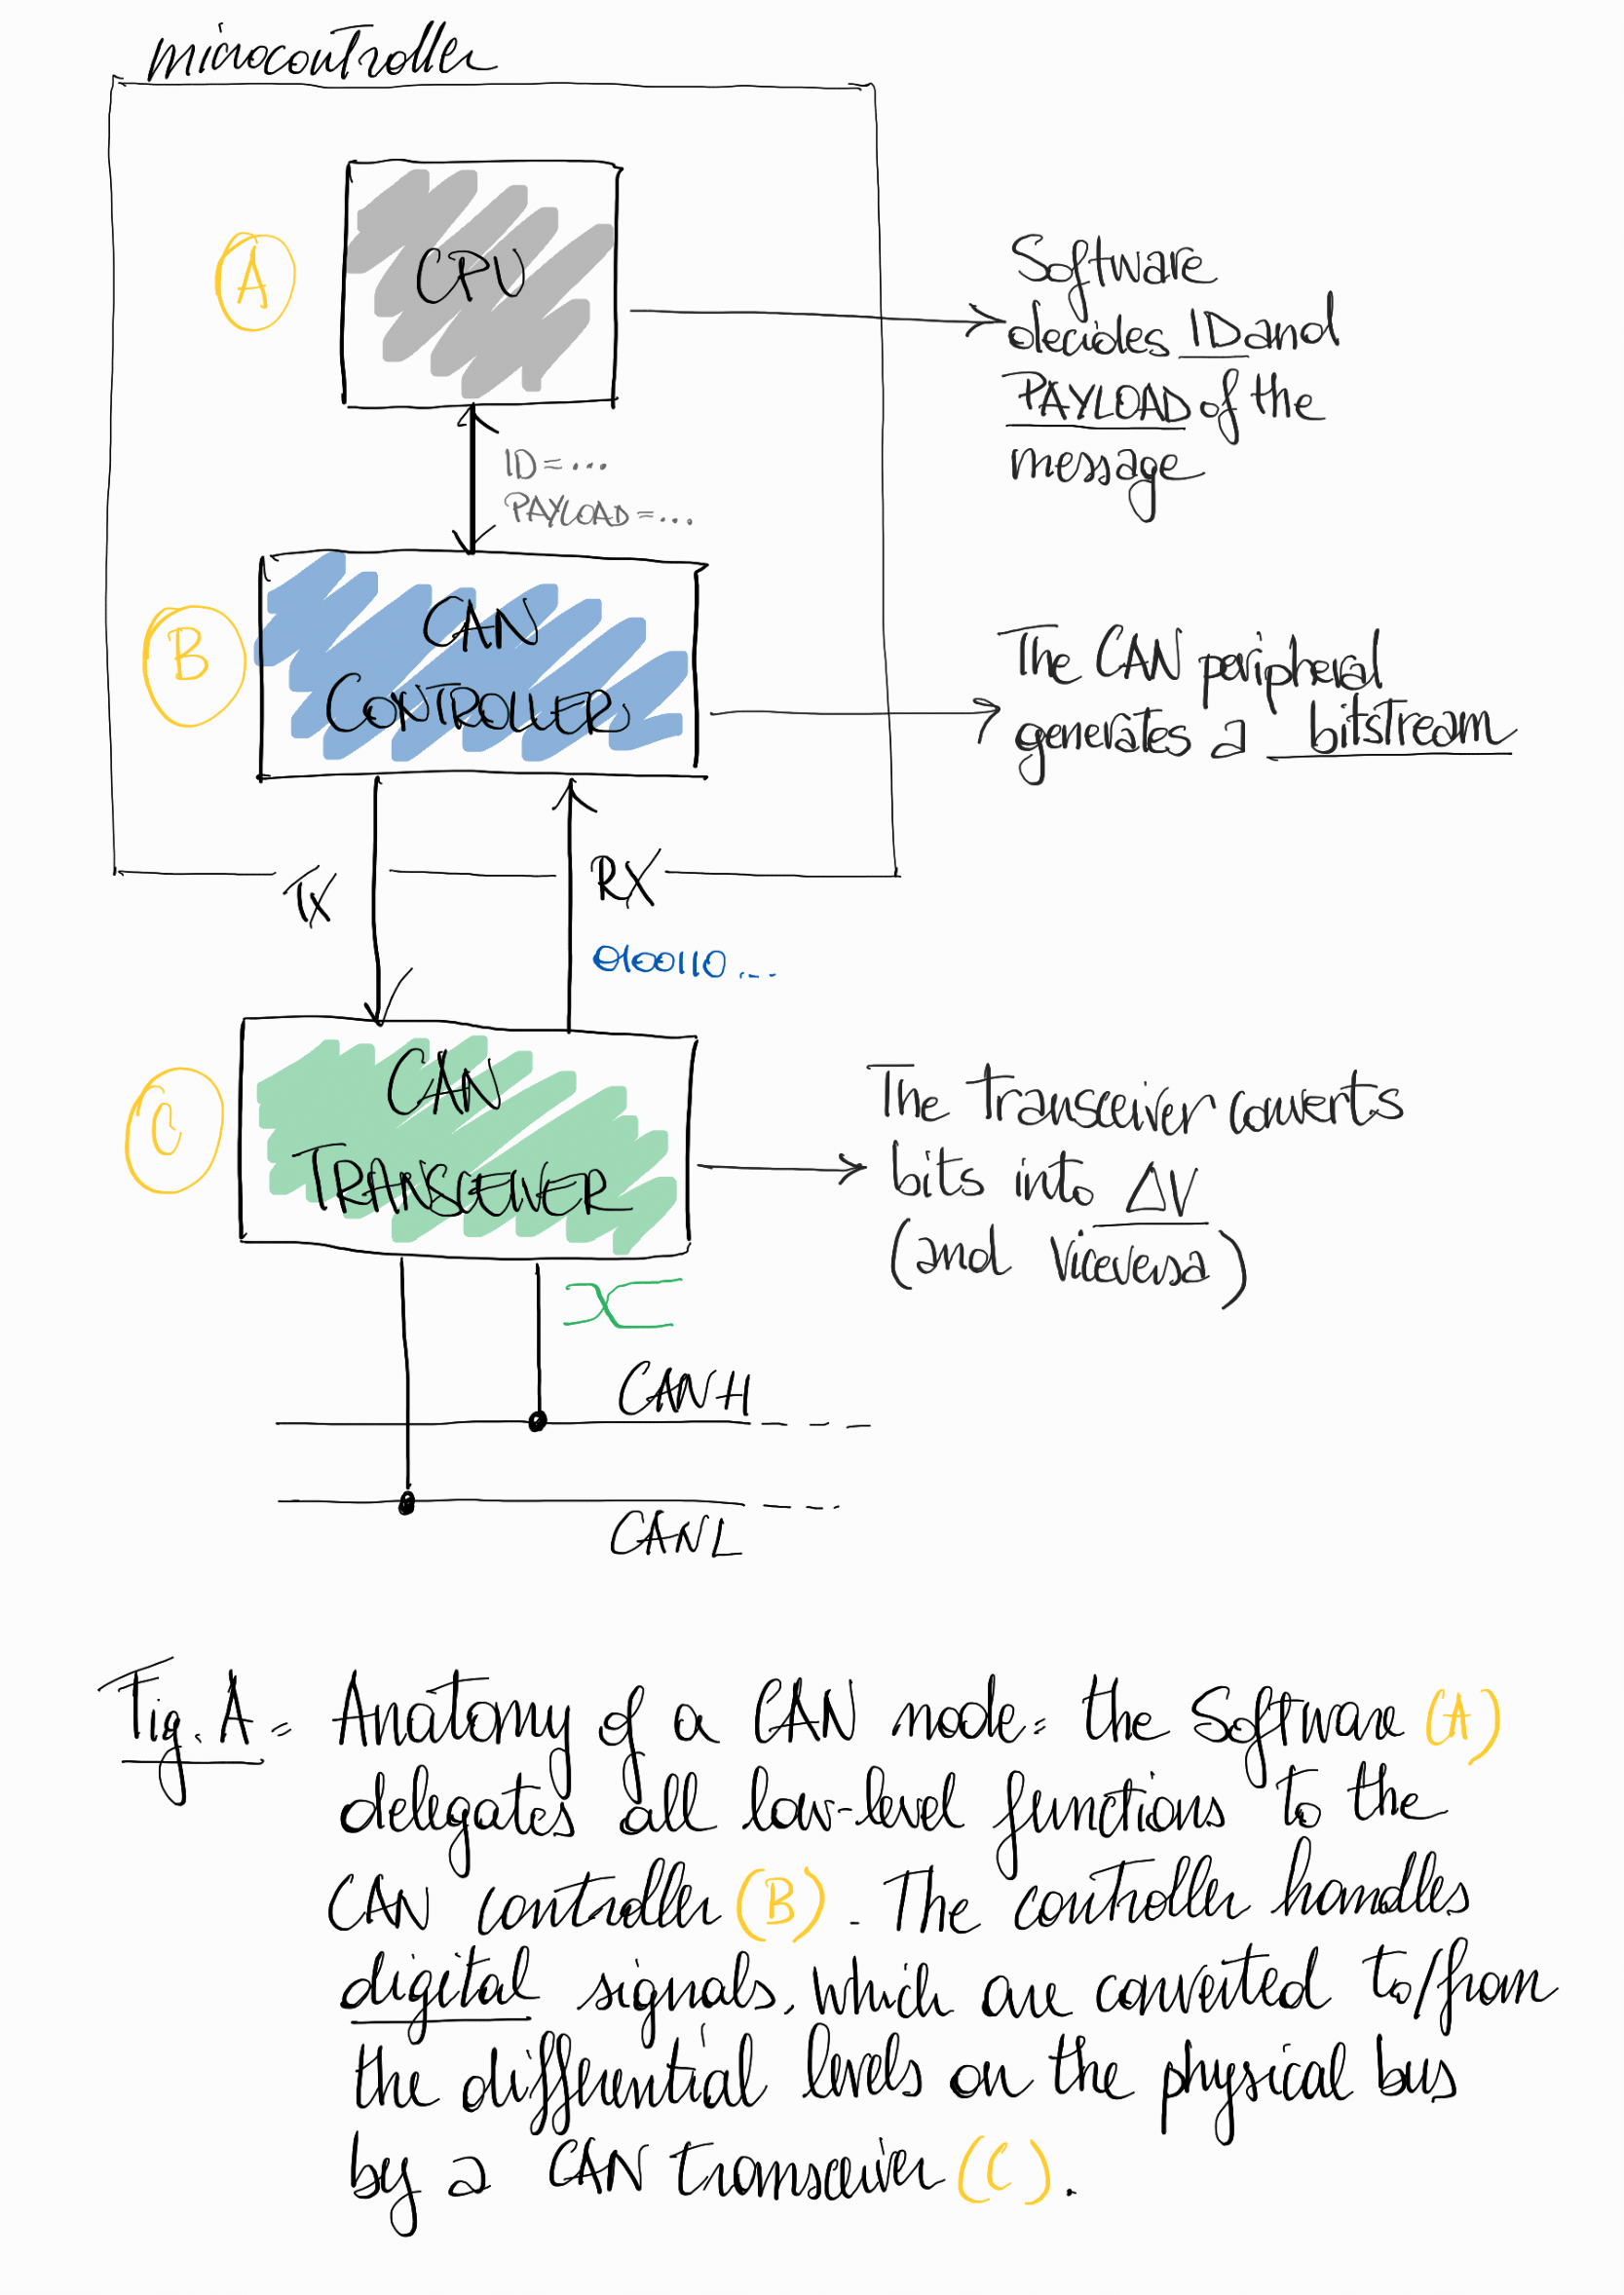 microcontroller
A
CPU
Software
decides ID and
PAYLOAD of the
message
ID = ...
PAYLOAD = ...
B
CAN
CONTROLLER
The CAN peripheral
generates a bitstream
TX
RX
0100110...
C
CAN
TRANSCEIVER
The transceiver converts
bits into ΔV
(and viceversa)
CANH
CANL
Fig. A = Anatomy of a CAN node: the Software (A)
delegates all low-level functions to the
CAN controller (B). The controller handles
digital signals, which are converted to/from
the differential levels on the physical bus
by a CAN transceiver (C).